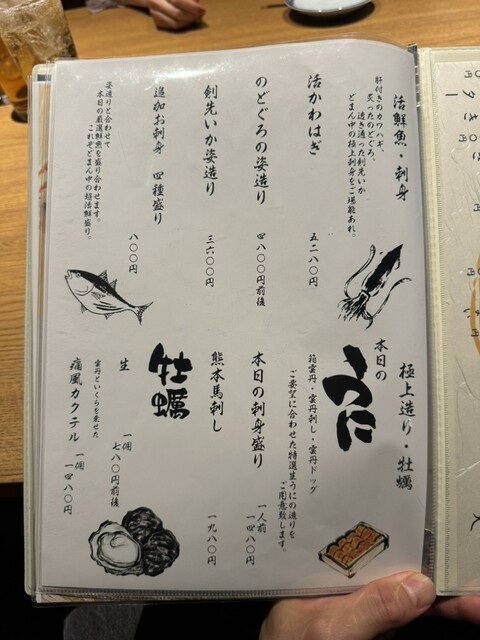 活鮮魚・刺身
肝付きのカワハギ、
炙ったのどぐろ、
透き通った剣先いか
どまん中の極上刺身をご堪能あれ。
活かわはぎ
五二八〇円
のどぐろの姿造り
四八〇〇円前後
剣先いか姿造り
三六〇〇円
追加お刺身 四種盛り
八〇〇円
姿造りと合わせて
本日の厳選鮮魚を盛り合わせます。
これぞどまん中の極活鮮盛り。
極上造り・牡蠣
本日の
うに
箱雲丹・雲丹刺し・雲丹ドッグ
ご要望に合わせた特選生うにの造りを
ご用意致します。
本日の刺身盛り
一人前
一四八〇円
熊本馬刺し
一九八〇円
牡蠣
生
一個
七八〇円前後
雲丹といくらを乗せた
痛風カクテル
一個
一四八〇円